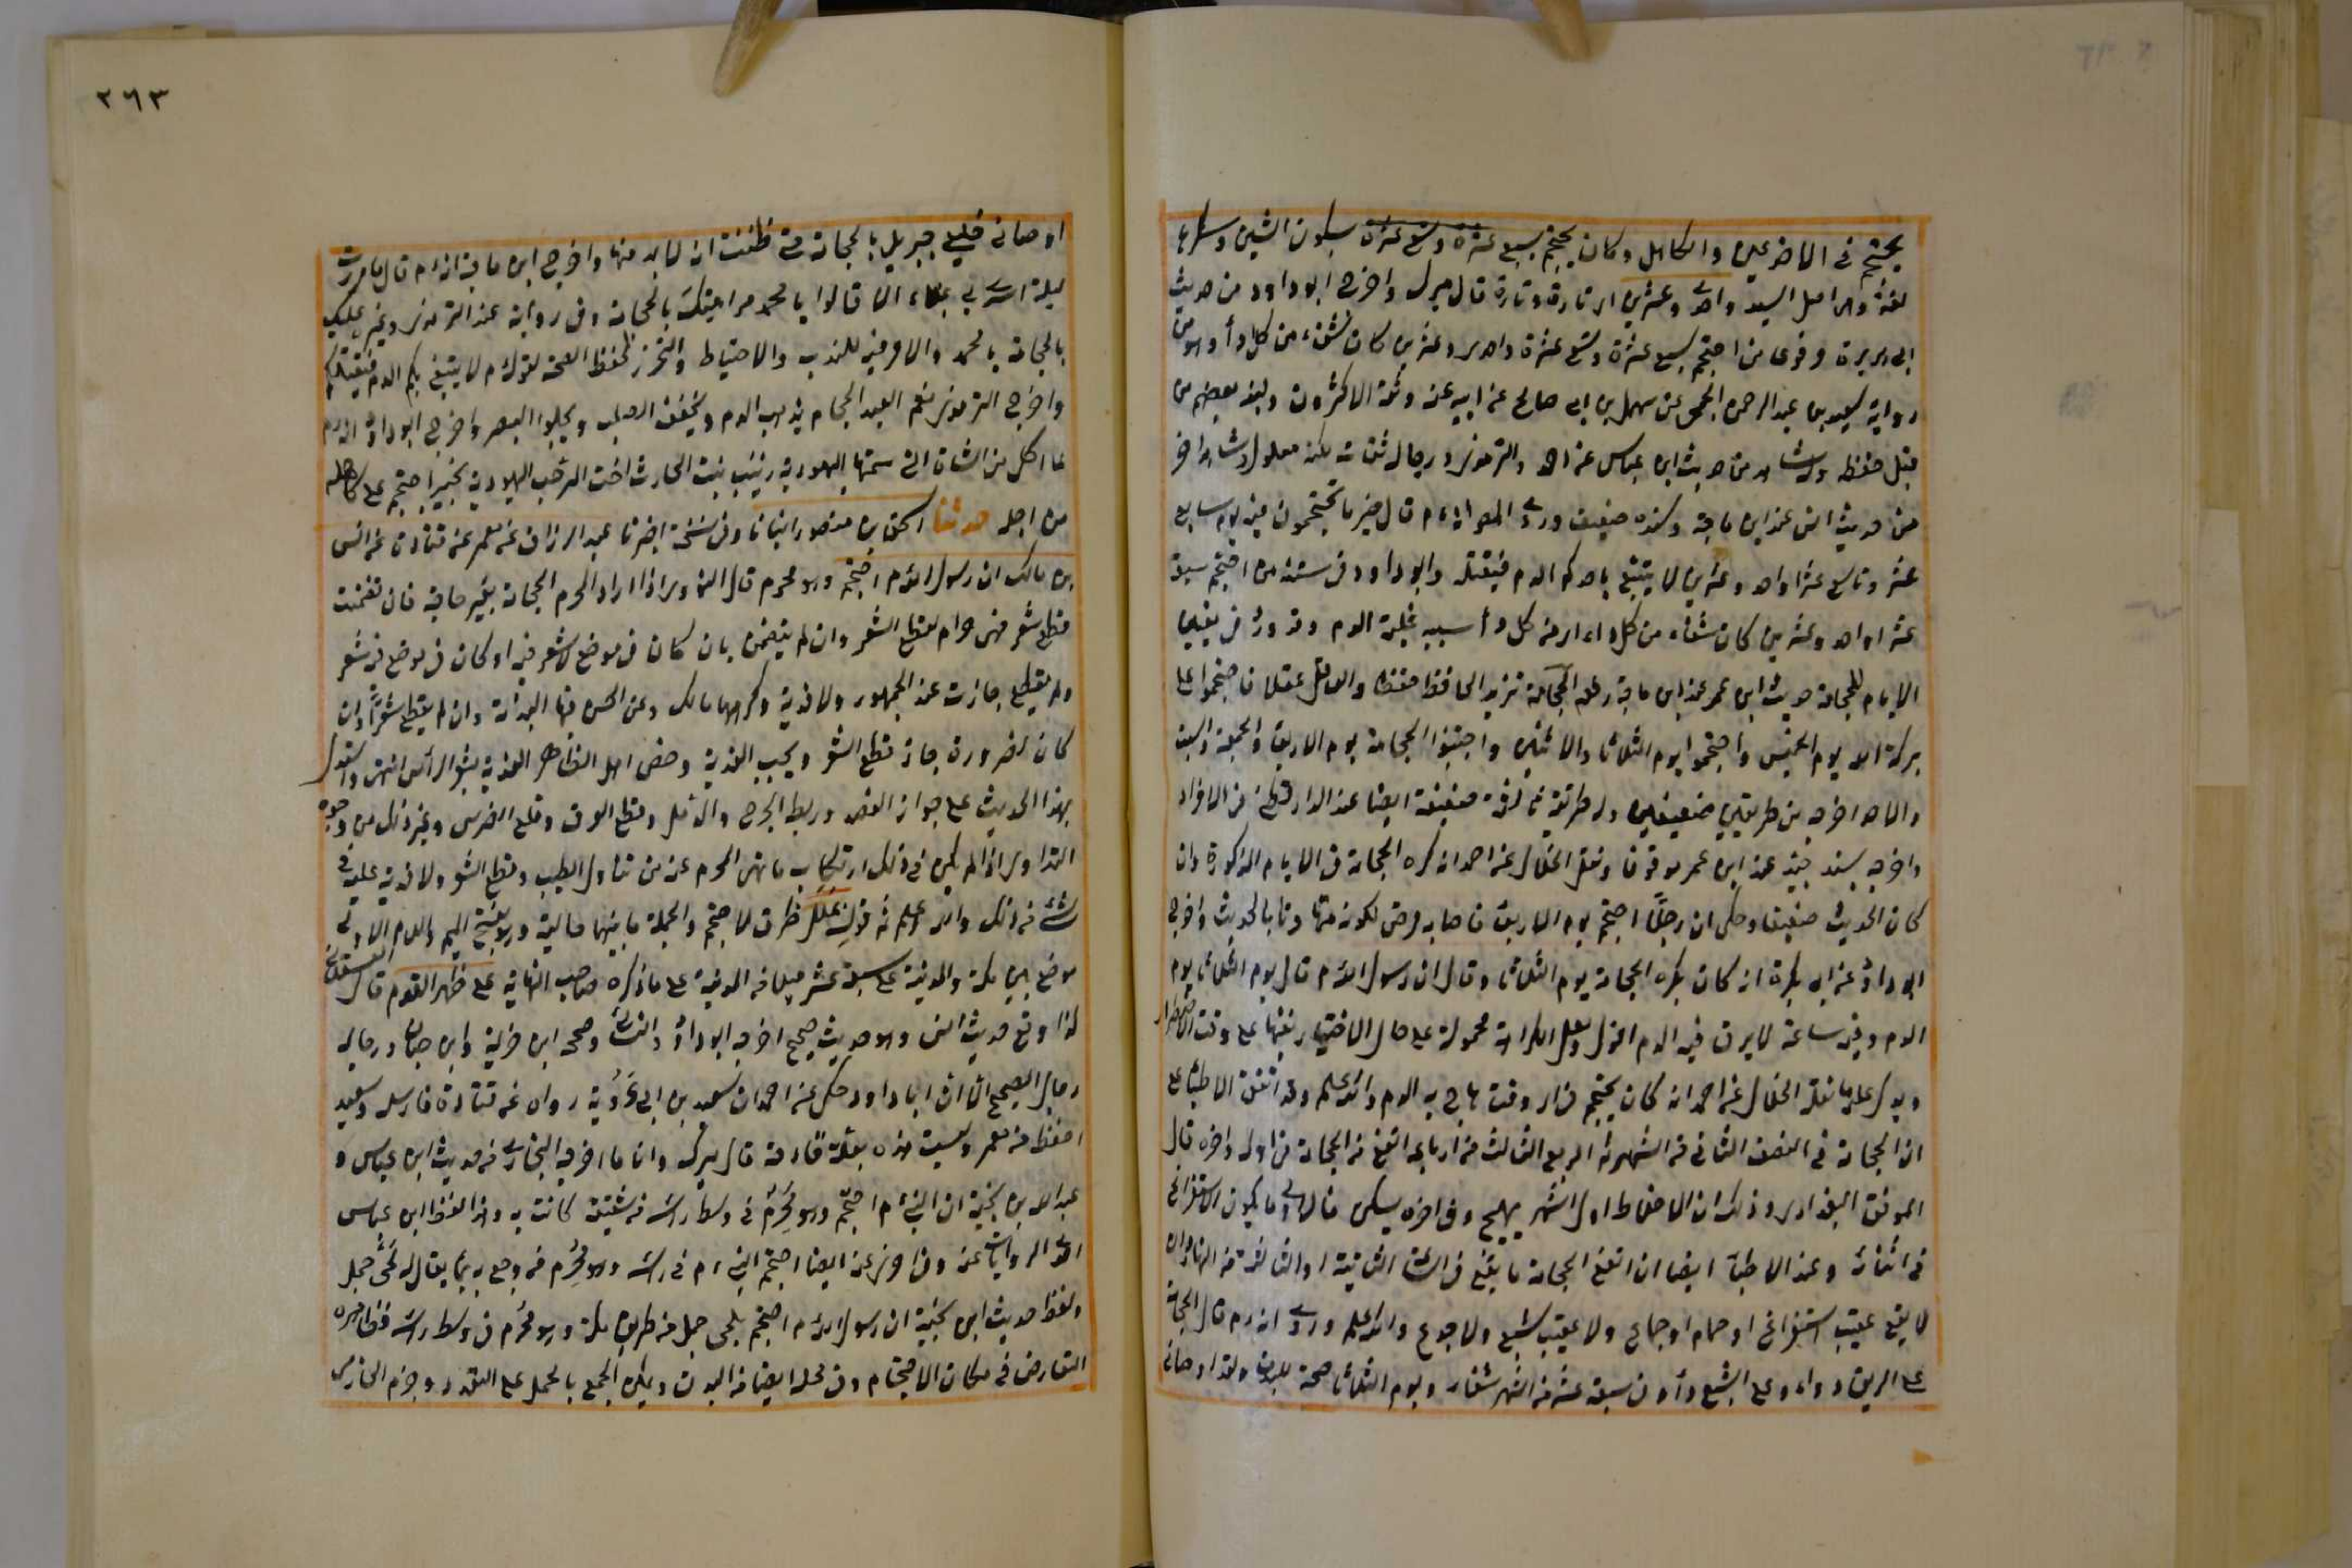 يحتجم في الاخدعين والكاهل وكان يحتجم بسبع عشرة وتسع عشرة بسكون الشين وكسرها
لغة واحدى وعشرين اى تارة وتارة قال ميرك واخرج ابو داود من حديث
ابى هريرة مرفوعا من احتجم بسبع عشرة وتسع عشرة واحدى وعشرين كان شفاء من كل داء وهو من
رواية سعيد بن عبد الرحمن الجمحى عن سهيل بن ابى صالح عن ابيه عنه وثقه الاكثرون ولينه بعضهم من
قبل حفظه وله شاهد من حديث ابن عباس عند احمد والترمذى ورجاله ثقات لكنه معلول وشاهد اخر
من حديث انس عند ابن ماجة وسنده ضعيف وروى انه م قال خير ما تحتجمون فيه يوم سابع
عشر وتاسع عشر او احد وعشرين لا يتبيغ باحدكم الدم فيقتله وابو داود فى سننه من احتجم سبع
عشر او احد وعشرين كان شفاء من كل داء اى من كل داء سببه غلبة الدم وقد ورد فى تعيين
الايام للحجامة حديث ابن عمر عند ابن ماجة رفعه الحجامة تزيد الحافظ حفظا والعاقل عقلا فاحتجموا على
بركة الله يوم الخميس واحتجموا يوم الثلاثا والاثنين واجتنبوا الحجامة يوم الاربعاء والجمعة والسبت
والاحد اخرجه من طريقين ضعيفين وله طريق ثالثة ضعيفة ايضا عند الدارقطنى فى الافراد
واخرجه بسند جيد عند ابن عمر موقوفا ونقل الخلال عن احمد انه كره الحجامة فى الايام المذكورة وان
كان الحديث ضعيفا وحكى ان رجلا احتجم يوم الاربعاء فاصابه مرض لكونه تهاونا بالحديث واخرج
ابو داود عن ابى بكرة انه كان يكره الحجامة يوم الثلاثا وقال ان رسول الله م قال يوم الثلاثا يوم
الدم وفيه ساعة لا يرقى فيه الدم اقول ولعل الكراهة محمولة على حال الاختيار ونفيها على وقت الاضطرار
ويدل عليه ما نقله الخلال عن احمد انه كان يحتجم فى اى وقت هاج به الدم والله اعلم وقد اتفقت الاطباء على
ان الحجامة فى النصف الثانى من الشهر ثم الربع الثالث من ارباعه انفع من الحجامة فى اوله واخره قال
الموفق البغدادى وذلك ان الاخلاط اول الشهر يهيج وفى اخره يسكن فالاولى ما يكون الاستفراغ
فى اثنائه وعند الاطباء ايضا ان انفع الحجامة ما يقع فى الساعة الثانية او الثالثة من النهار وان
لا يقع عقيب استفراغ او حمام او جماع ولا عقيب شبع ولا جوع والله اعلم وروى انه م قال الحجامة
على الريق دواء وعلى الشبع داء وفى سبعة عشر من الشهر شفاء ويوم الثلاثا صحة للبدن ولقد اوصانى
٢٦٣
اوصانى خليلى جبريل بالحجامة حتى ظننت انه لا بد منها واخرج ابن ماجة انه م قال ما مررت
ليلة اسرى بى بملاء الا قالوا يا محمد مر امتك بالحجامة وفى رواية عند الترمذى وغيره عليك
بالحجامة يا محمد والامر فيه للندب والاحتياط والتحرز لحفظ الصحة لقوله م لا يتبيغ بكم الدم فيقتلكم
واخرج الترمذى نعم العبد الحجام يذهب الدم ويخفف الصلب ويجلو البصر واخرج ابو داود انه م
لما اكل من الشاة التى سمتها اليهودية زينب بنت الحارث اخت المرحب اليهودية بخيبر احتجم على كاهله
من اجله حدثنا اسحق بن منصور انبانا وفى نسخة اخبرنا عبد الرزاق عن معمر عن قتادة عن انس
بن مالك ان رسول الله م احتجم وهو محرم قال النووى اذا اراد المحرم الحجامة بغير حاجة فان تضمنت
قطع شعر فهى حرام لقطع الشعر وان لم يتضمن بان كان فى موضع لا شعر فيه او كان فى موضع فيه شعر
ولم يقطع جازت عند الجمهور ولا فدية وكرهها مالك وعن الحسن فيها الفدية وان لم يقطع شعرا وان
كان لضرورة جاز قطع الشعر ويجب الفدية وخص اهل الظاهر الفدية بشعر الرأس انتهى واستدل
بهذا الحديث على جواز الفصد وربط الجرح والدمل وقطع العرق وقلع الضرس وغير ذلك من وجوه
التداوى اذا لم يكن فى ذلك ارتكاب ما نهى المحرم عنه من تناول الطيب وقطع الشعر ولا فدية عليه فى
شئ من ذلك والله اعلم ثم قوله بملل ظرف لاحتجم والجملة ما بينهما حالية وهو بفتح الميم واللام الاولى
موضع بين مكة والمدينة على سبعة عشر ميلا من المدينة على ما ذكره صاحب النهاية على ظهر القدم قال العسقلانى
كذا وقع حديث انس وهو حديث صحيح اخرجه ابو داود والنسائى وصححه ابن خزيمة وابن حبان ورجاله
رجال الصحيح الا ان ابا داود حكى عن احمد ان سعيد بن ابى عروبة رواه عن قتادة فارسله وسعيد
احفظ من معمر وليست هذه بعلة قادحة قال ميرك واما ما اخرجه البخارى من حديث ابن عباس و
عبد الله بن بحينة ان النبى م احتجم وهو محرم فى وسط رأسه من شقيقة كانت به وهذا لفظ ابن عباس
الروايات عنه وفى اخرى عنه ايضا احتجم النبى م فى رأسه وهو محرم من وجع به بماء يقال له لحى جمل
ولفظ حديث ابن بحينة ان رسول الله م احتجم بلحى جمل من طريق مكة وهو محرم فى وسط رأسه فظاهره
التعارض فى مكان الاحتجام وفى محله ايضا من البدن ويمكن الجمع بالحمل على التعدد وجزم الحازمى